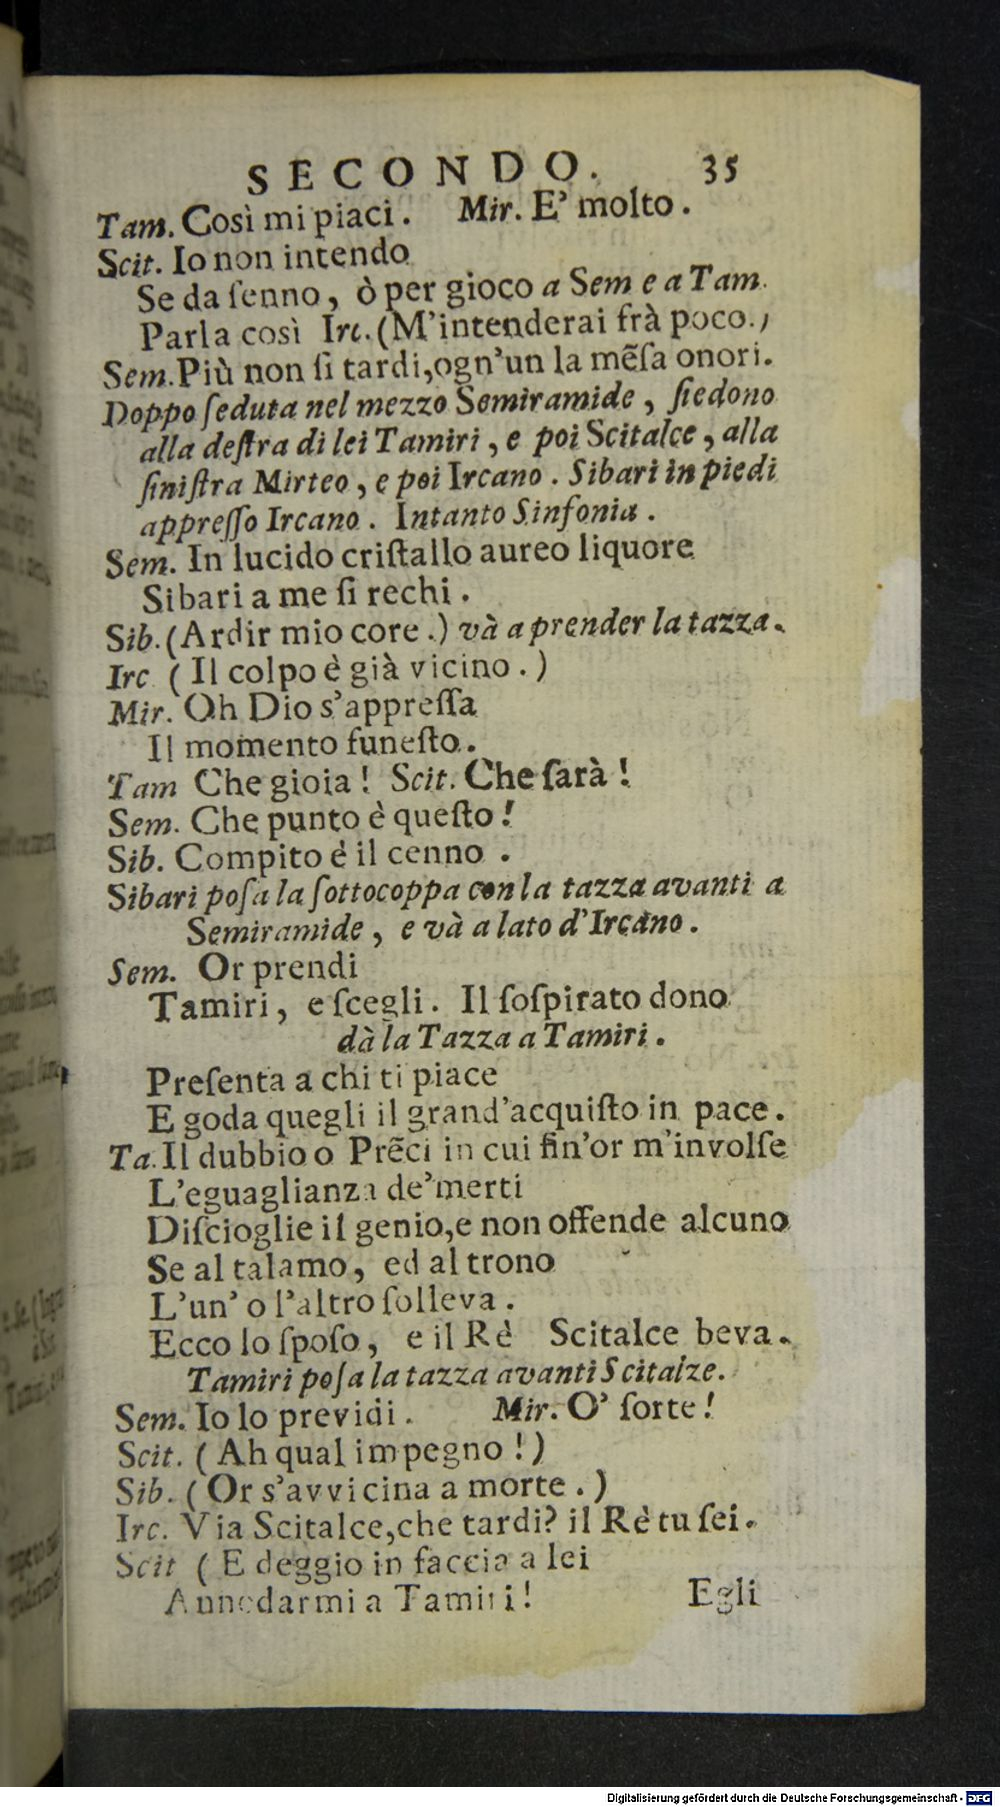 SECONDO. 35
Tam. Così mi piaci. Mir. E' molto.
Scit. Io non intendo
Se da ſenno, ò per gioco a Sem e a Tam.
Parla così Irc. (M'intenderai frà poco.)
Sem. Più non ſi tardi, ogn'un la mẽſa onori.
Doppo ſeduta nel mezzo Semiramide, ſiedono
alla deſtra di lei Tamiri, e poi Scitalce, alla
ſiniſtra Mirteo, e poi Ircano. Sibari in piedi
appreſſo Ircano. Intanto Sinfonia.
Sem. In lucido criſtallo aureo liquore
Sibari a me ſi rechi.
Sib. (Ardir mio core.) và a prender la tazza.
Irc (Il colpo è già vicino.)
Mir. Oh Dio s'appreſſa
Il momento funeſto.
Tam Che gioia! Scit. Che ſarà!
Sem. Che punto è queſto!
Sib. Compito é il cenno.
Sibari poſa la ſottocoppa con la tazza avanti a
Semiramide, e và a lato d'Ircano.
Sem. Or prendi
Tamiri, e ſcegli. Il ſoſpirato dono
dà la Tazza a Tamiri.
Preſenta a chi ti piace
E goda quegli il grand'acquiſto in pace.
Ta. Il dubbio o Prẽci in cui fin'or m'involſe
L'eguaglianza de'merti
Diſcioglie il genio, e non offende alcuno
Se al talamo, ed al trono
L'un' o l'altro ſolleva.
Ecco lo ſpoſo, e il Rè Scitalce beva.
Tamiri poſa la tazza avanti Scitalze.
Sem. Io lo previdi. Mir. O' ſorte!
Scit. (Ah qual impegno!)
Sib. (Or s'avvicina a morte.)
Irc. Via Scitalce, che tardi? il Rè tu ſei.
Scit (E deggio in faccia a lei
Annodarmi a Tamiri! Egli
Digitalisierung gefördert durch die Deutsche Forschungsgemeinschaft - DFG